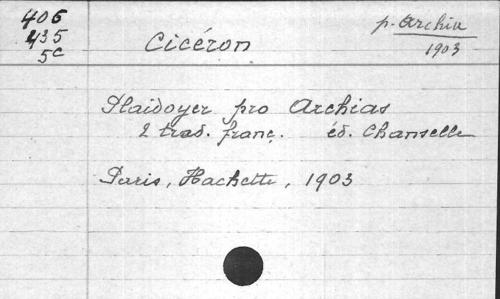 406
435
5C
Cicéron
p. Archia
1903
Plaidoyer pro Archias
2 trad. franç. éd. Chanselle
Paris, Hachette, 1903